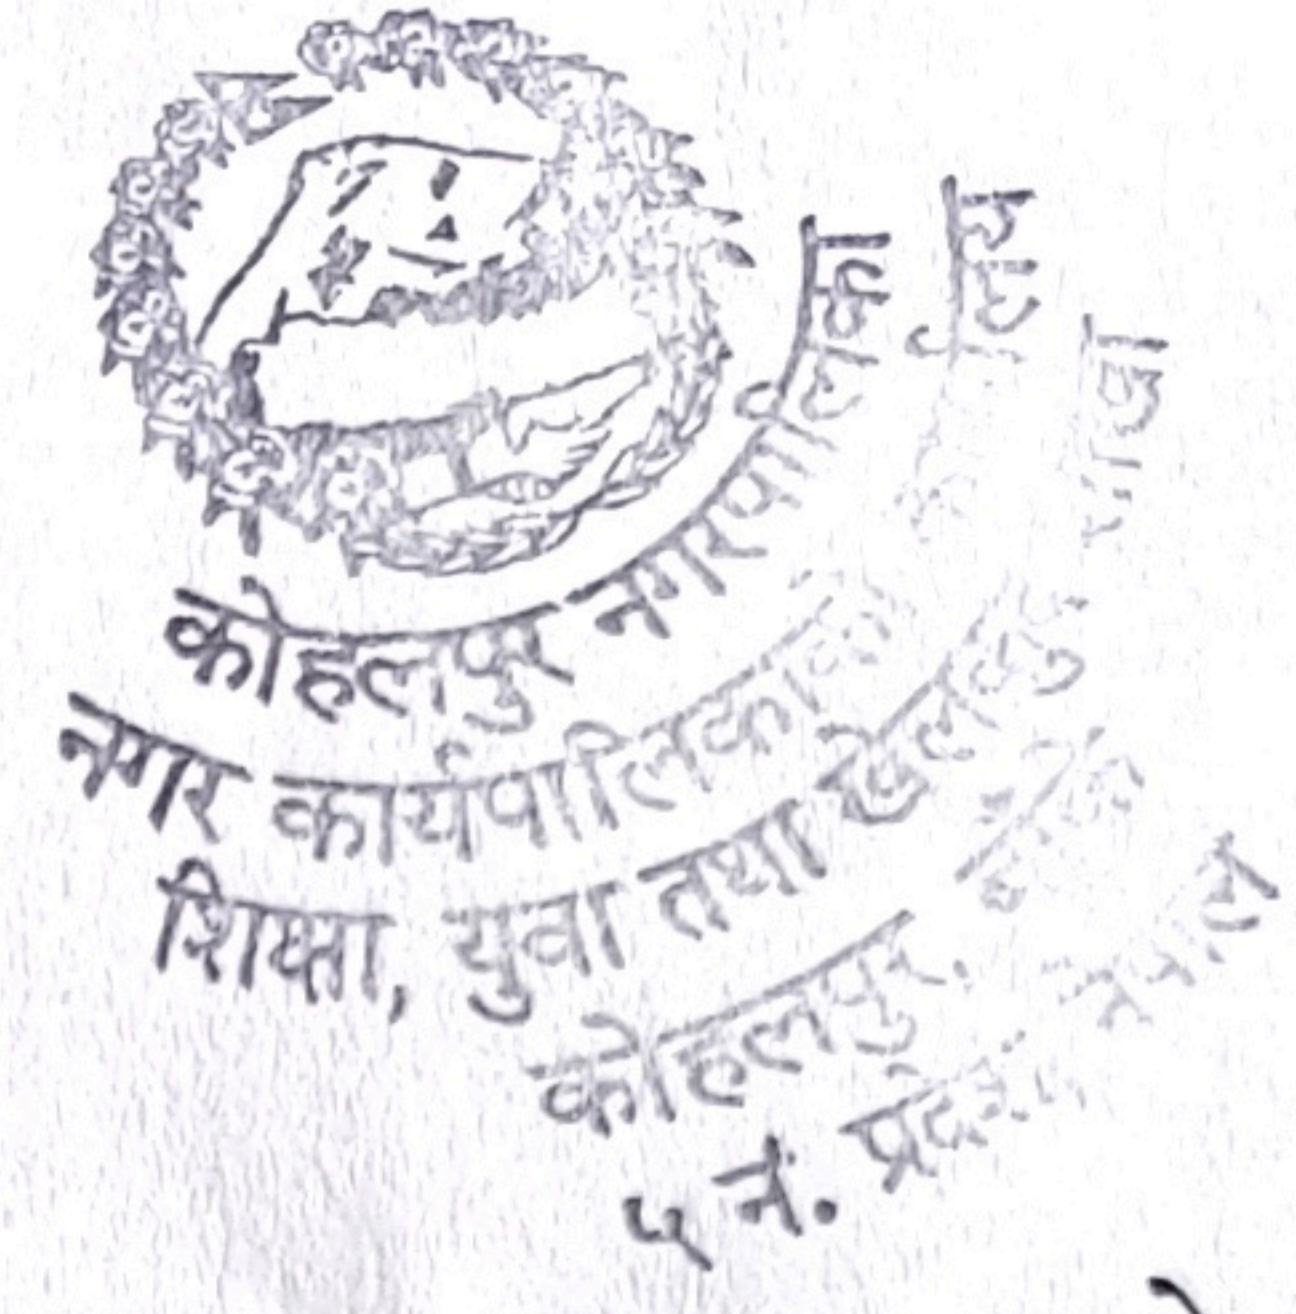 कोहलपुर नगरपालिका
नगर कार्यपालिकाको
शिक्षा, युवा तथा खेलकुद शाखा
कोहलपुर,
५ नं. प्रदेश, नेपाल